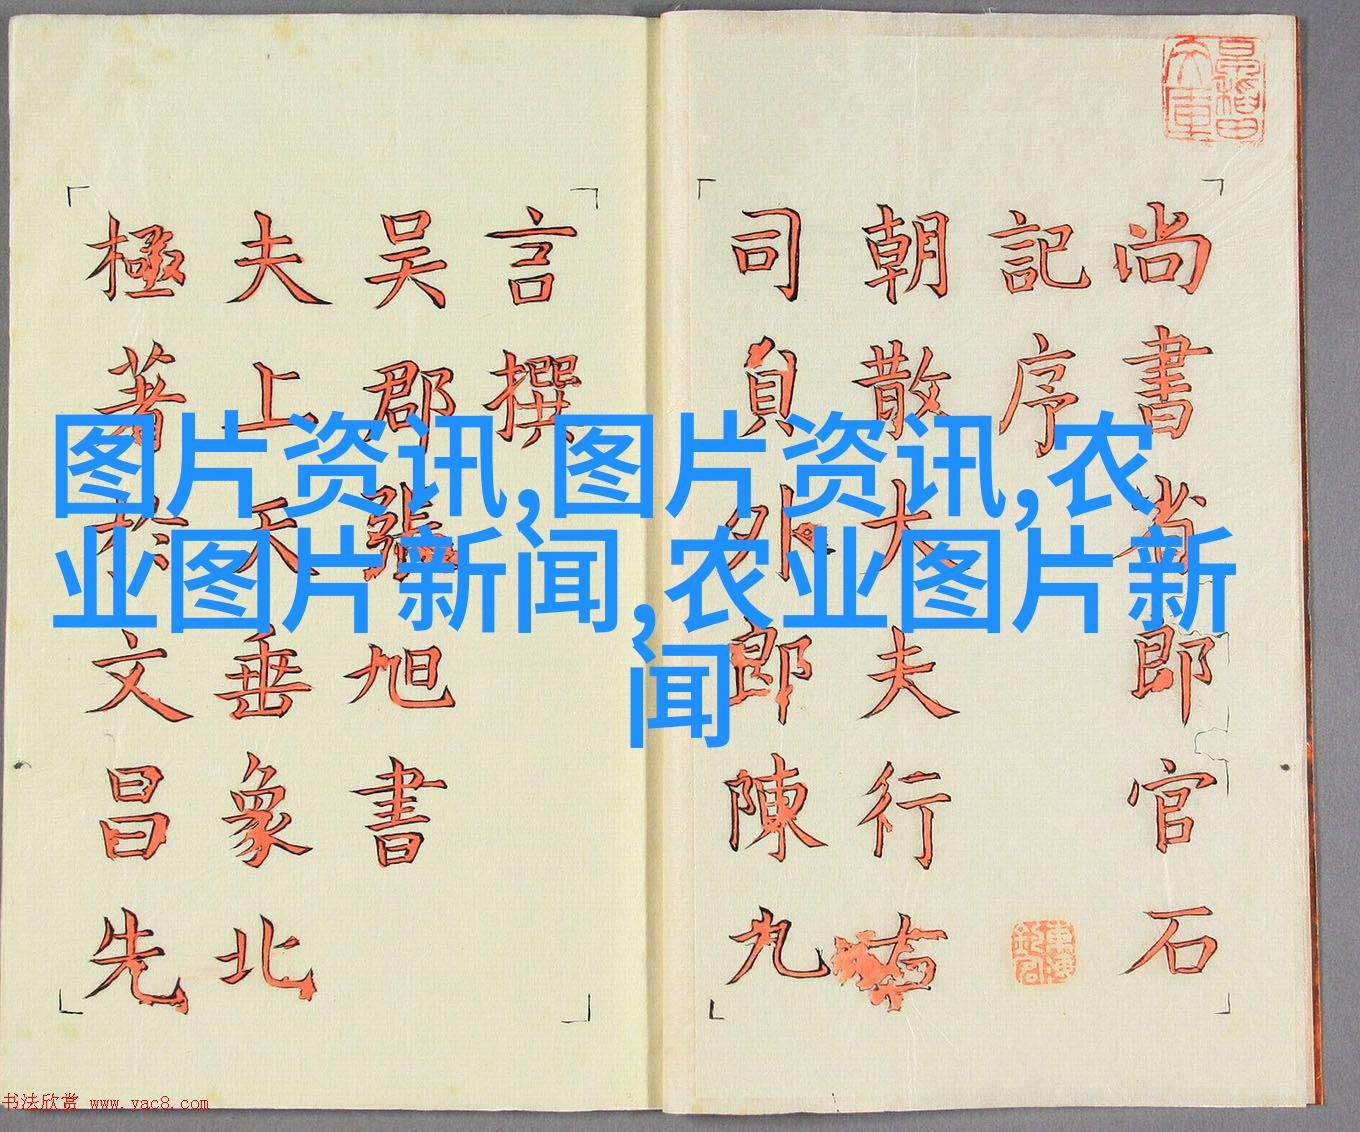 尚書省郎官石
記序
朝散大夫行右
司員外郎陳九
言撰
吴郡張旭書
夫上天垂象北
極著於文昌先
图片资讯,图片资讯,农
业图片新闻,农业图片新
闻
书法欣赏 www.yac8.com